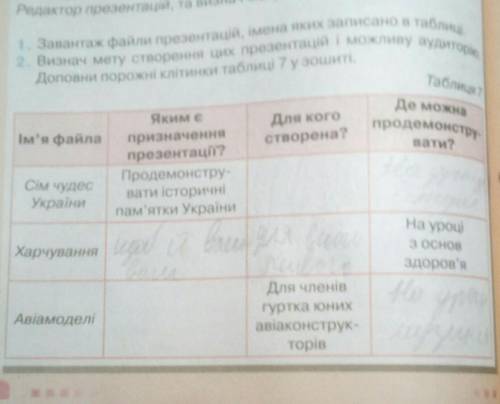 Редактор презентацій, та
1. Завантаж файли презентацій, імена яких записано в таблиці.
2. Визнач мету створення цих презентацій і можливу аудиторію.
Доповни порожні клітинки таблиці 7 у зошиті.
Таблиця 7
Ім'я файла
Яким є
призначення
презентації?
Для кого
створена?
Де можна
продемонстру-
вати?
Сім чудес
України
Продемонстру-
вати історичні
пам'ятки України
На
Харчування
для
На уроці
з основ
здоров'я
Авіамоделі
Для членів
гуртка юних
авіаконструк-
торів
На